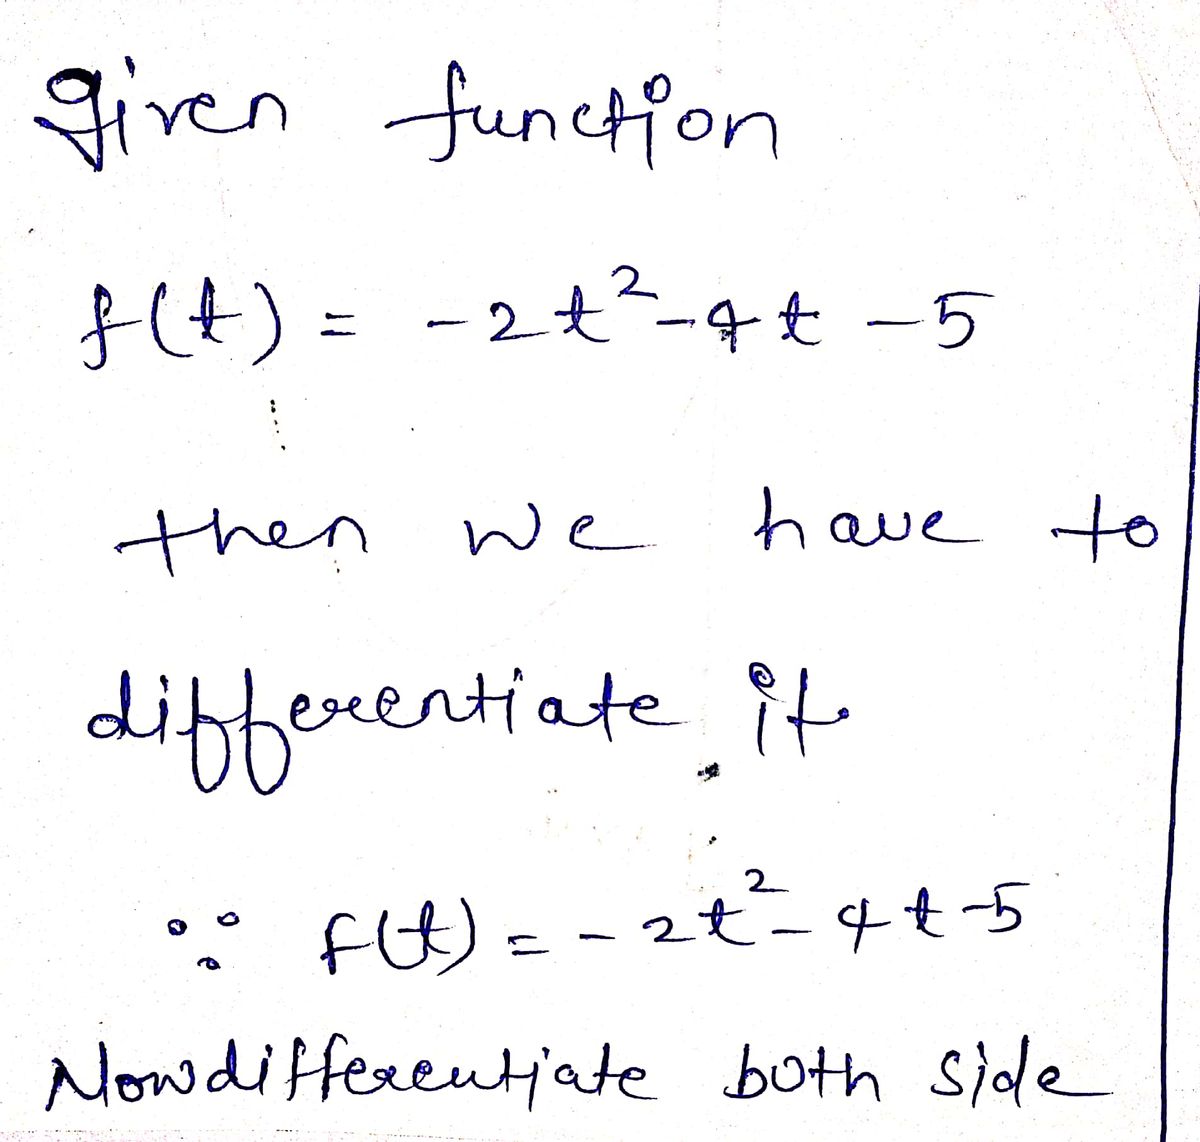 given function
f(t) = -2t²-4t-5
then we have to
differentiate it
∵ f(t) = -2t²-4t-5
Now differentiate both side